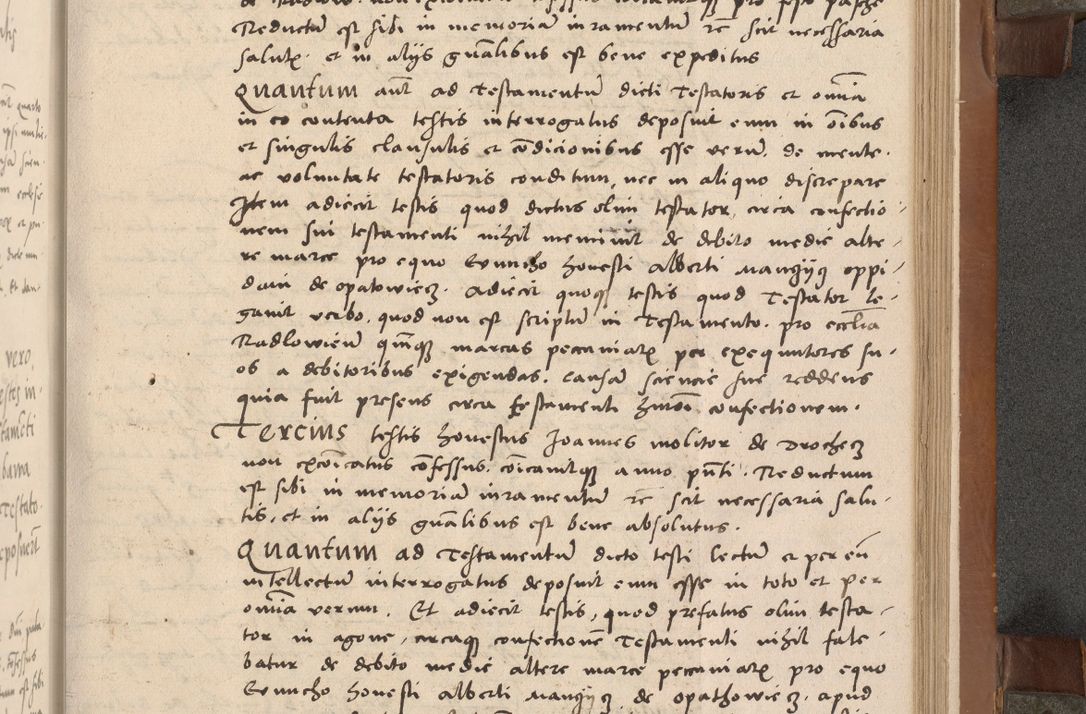 Reductū est sibi in memoriā iuramentū re͞ scit necessaria
salut͞. et in alijs gn͞alibus est bene expeditus
Quantum aut͞ ad Testamentū dicti Testatoris et om͞ia
in eo contenta testis interrogatus deposuit eum in o͞ibus
et singulis clausulis et co͞dicionibus esse verū. de mente.
ac voluntate testatoris conditum, nec in aliquo discrepare
Item adiecit testis quod dictus olim testator, circa confectio
nem sui testamenti nihil meminit de debito medie alte
re marce pro equo Evnucho honesti Alberti Mangijs oppi
dani de opatowiecz. adiecit quoq͞ testis quod Testator le-
gavit verbo. quod non est scriptū in Testamento. pro eccl͞ia
Radlowień quinq͞ marcas pecuniar͞ per exequutores su-
os a debitoribus exigendas. Causā sciencie sue reddens
quia fuit presens circa testamenti hmo͞i confectionem.
Tercius testis honestus Joannes molitor de Drochecz
non exco͞icatus co͞fessus. co͞icavitq͞ anno pn͞ti. Reductum
est sibi in memoriā iuramentū re͞ scit necessaria salu-
tis, et in alijs gn͞alibus est bene absolutus.
Quantum ad Testamentū dicto testi lectū et per eū
intellectū interrogatus deposuit eum esse in toto et per
om͞ia verum. Et adiecit testis, quod prefatus olim testa-
tor in agone, circaq͞ confectione͞ Testamenti nihil fate-
batur de debito medie altere marce pecuniar͞ pro equo
Evnucho honesti Alberti Mangijs de opathowiecz. apud